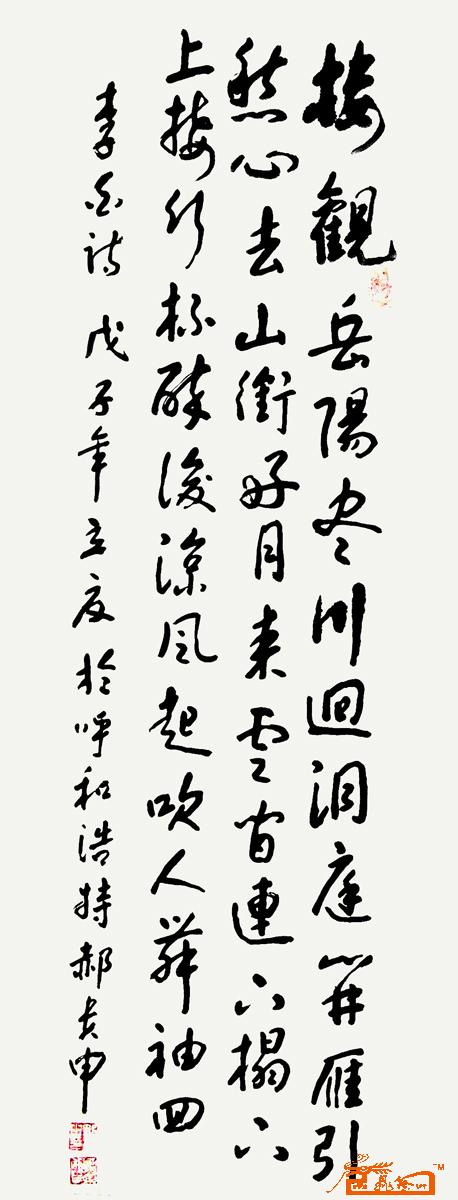 楼觀岳陽尽川迴洞庭開雁引
愁心去山銜好月来雲間連下榻天
上接行杯醉後涼風起吹人舞袖回
李白詩 戊子年立夏於呼和浩特郝申